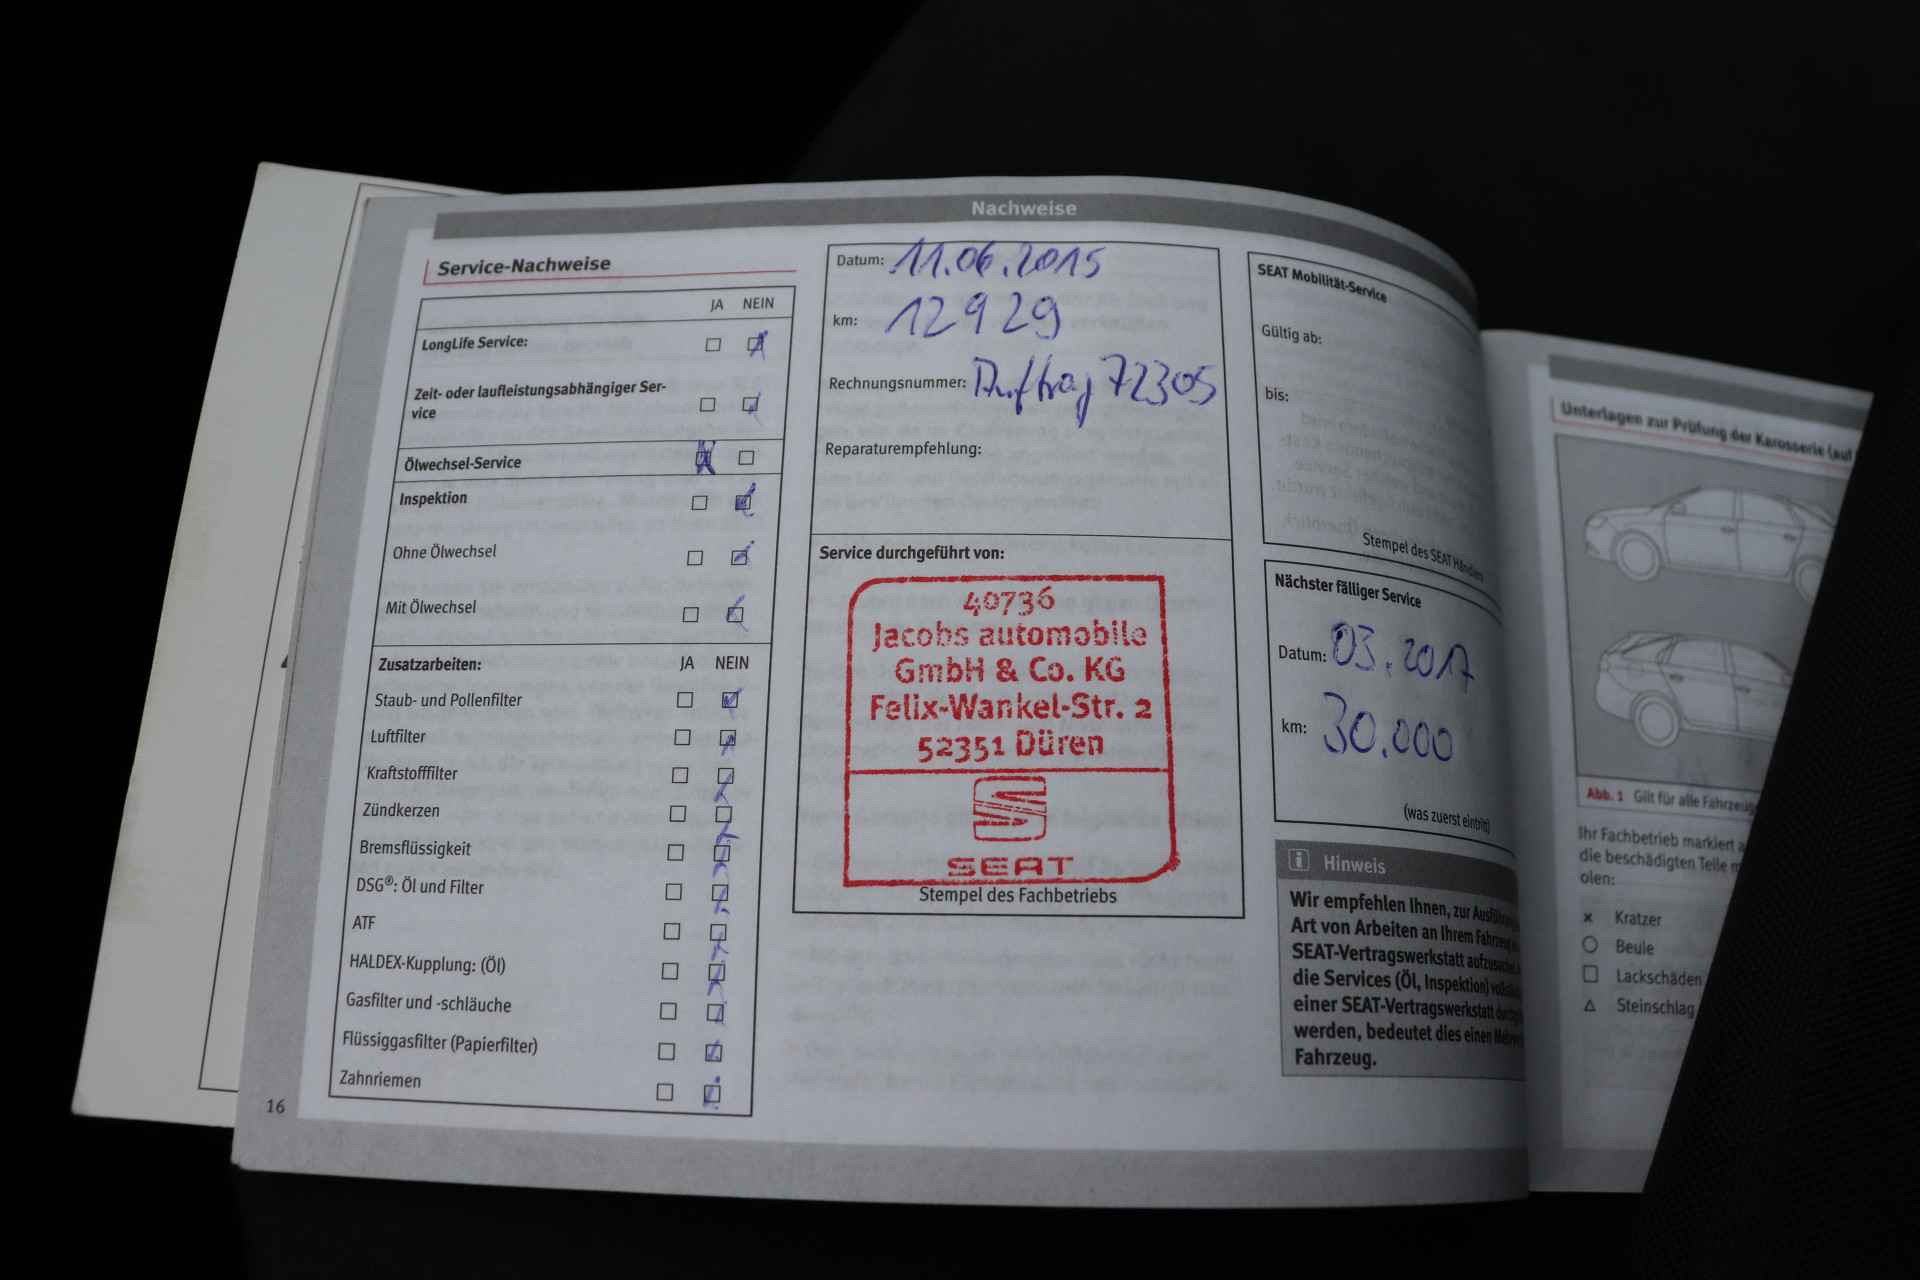 Nachweise
Service-Nachweise
JA NEIN
LongLife Service:
Zeit- oder laufleistungsabhängiger Ser-
vice
Ölwechsel-Service
Inspektion
Ohne Ölwechsel
Mit Ölwechsel
Zusatzarbeiten: JA NEIN
Staub- und Pollenfilter
Luftfilter
Kraftstofffilter
Zündkerzen
Bremsflüssigkeit
DSG®: Öl und Filter
ATF
HALDEX-Kupplung: (Öl)
Gasfilter und -schläuche
Flüssiggasfilter (Papierfilter)
Zahnriemen
16
Datum: 11.06.2015
km: 12929
Rechnungsnummer: Auftrag 72305
Reparaturempfehlung:
Service durchgeführt von:
40736
Jacobs automobile
GmbH & Co. KG
Felix-Wankel-Str. 2
52351 Düren
SEAT
Stempel des Fachbetriebs
SEAT Mobilität-Service
Gültig ab:
bis:
Stempel des SEAT Händlers
Nächster fälliger Service
Datum: 03.2017
km: 30.000
(was zuerst eintritt)
Hinweis
Wir empfehlen Ihnen, zur
Art von Arbeiten an Ihrem
SEAT-Vertragswerkstatt
die Services (Öl, Inspektion)
einer SEAT-Vertragswerkstatt
werden, bedeutet dies einen
Fahrzeug.
Unterlagen zur Prüfung der Karosserie (auf
Abb. 1 Gilt für alle
Ihr Fachbetrieb markiert
die beschädigten Teile
olen:
Kratzer
Beule
Lackschäden
Steinschlag